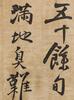 五十餘旬
滿地臭難